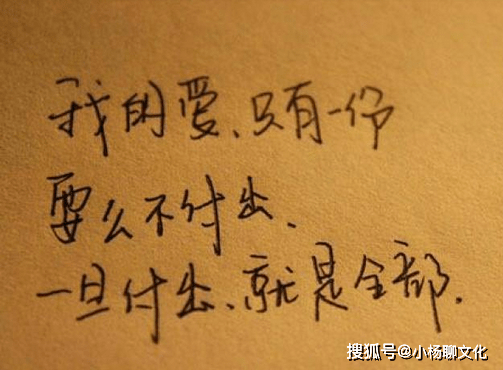 我的爱、只有一份
要么不付出、
一旦付出、就是全部.
搜狐号@小杨聊文化